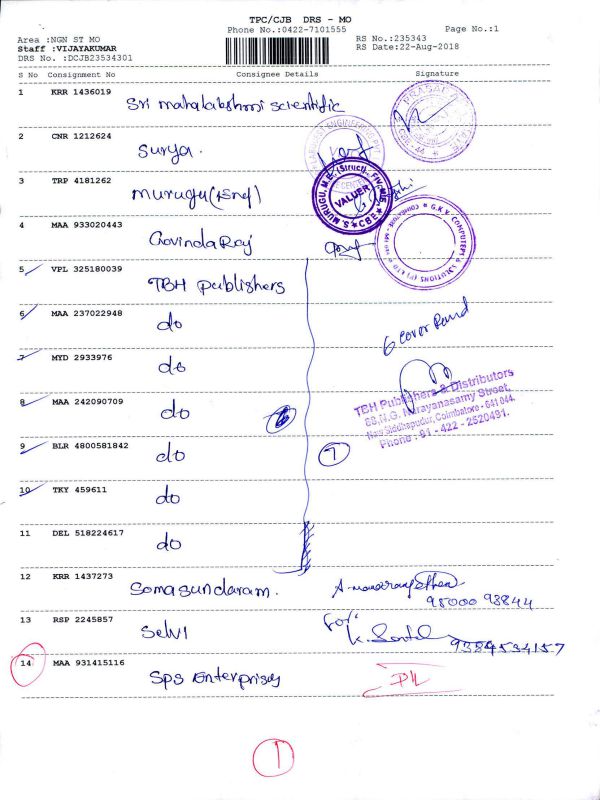 TPC/CJB DRS - MO
Phone No.:0422-7101555
Page No.:1
Area :NGN ST MO
RS No.:235343
Staff :VIJAYAKUMAR
RS Date:22-Aug-2018
DRS No. :DCJB23534301
S No Consignment No Consignee Details Signature
1 KRR 1436019 Sri mahalakshmi scientific
2 CNR 1212624 Surya.
3 TRP 4181262 Murugu
S. MURUGU, M.E.(Struct), FIV, MIS
VALUER
CBE
4 MAA 933020443 GovindaRaj
G.K.V. COMPUTERS & SOLUTIONS (P) LTD
5 VPL 325180039 TBH Publishers
6 MAA 237022948 do
6 cover
7 MYD 2933976 do
TBH Publishers & Distributors
88, N.G. Narayanasamy Street,
New Siddhapudur, Coimbatore - 641 044.
Phone : 91 - 422 - 2520491.
8 MAA 242090709 do
9 BLR 4800581842 do
7
10 TKY 459611 do
11 DEL 518224617 do
12 KRR 1437273 Somasundaram.
95000 93844
13 RSP 2245857 Selvi
9384534157
14 MAA 931415116 Sps Enterprises
1